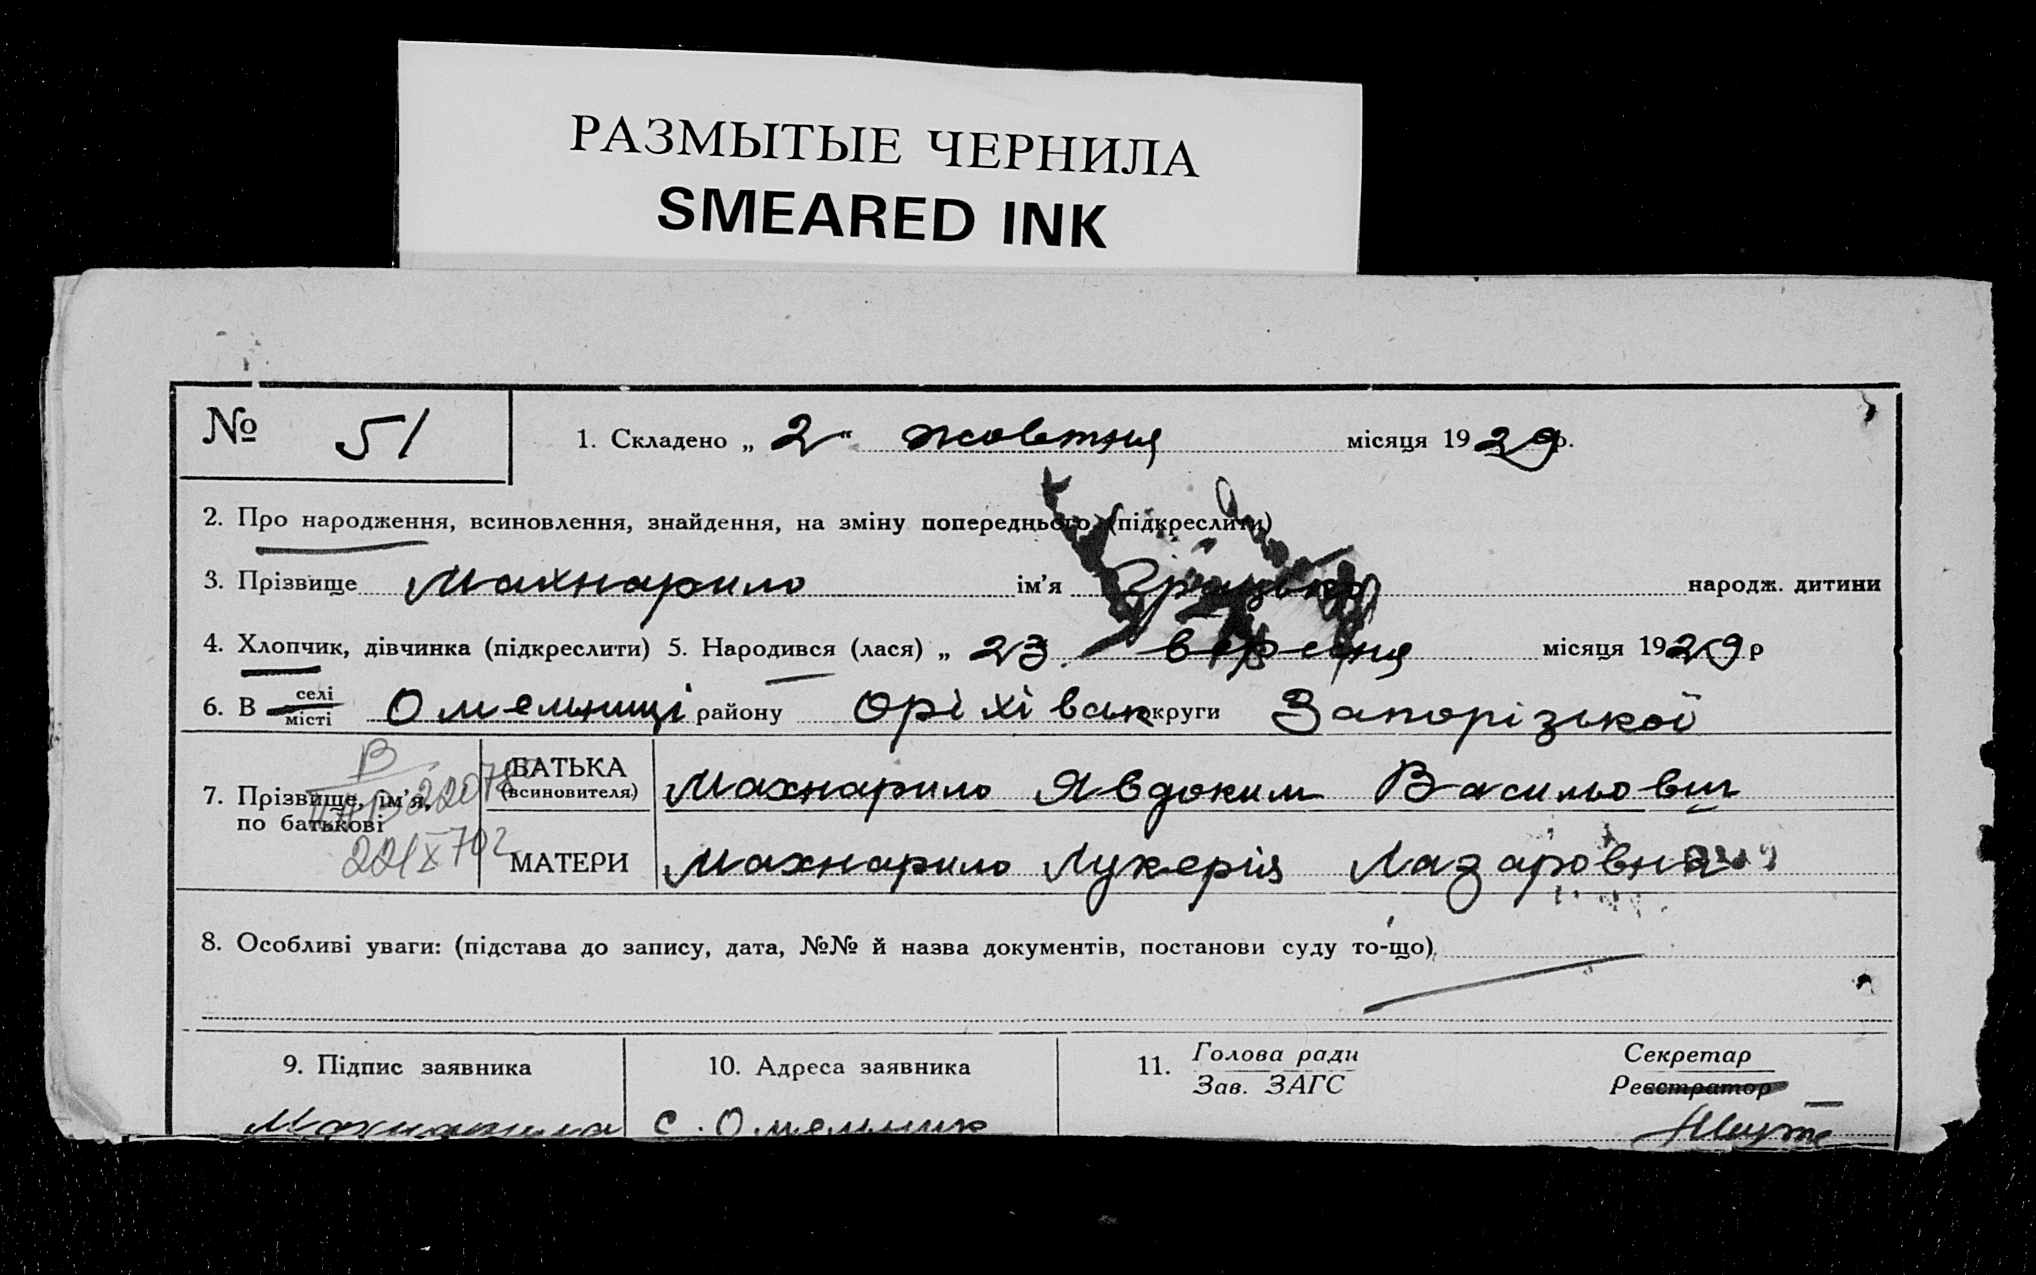 РАЗМЫТЫЕ ЧЕРНИЛА
SMEARED INK
№ 51
1. Складено „ 2 " жовтня місяця 1929 р.
2. Про народження, всиновлення, знайдення, на зміну попереднього (підкреслити)
3. Прізвище Махнарило ім'я Грицько народж. дитини
4. Хлопчик, дівчинка (підкреслити) 5. Народився (лася) „ 23 вересня місяця 1929 р
6. В селі місті Омельниці району Оріхівськ округи Запорізької
7. Прізвище, ім'я, по батькові
БАТЬКА (всиновителя) Махнарило Явдоким Васильович
МАТЕРИ Махнарило Лукерія Лазаровна
8. Особливі уваги: (підстава до запису, дата, №№ й назва документів, постанови суду то-що)
9. Підпис заявника
10. Адреса заявника
11. Голова ради Зав. ЗАГС
Секретар Реєстратор
Махнарило
с. Омельник